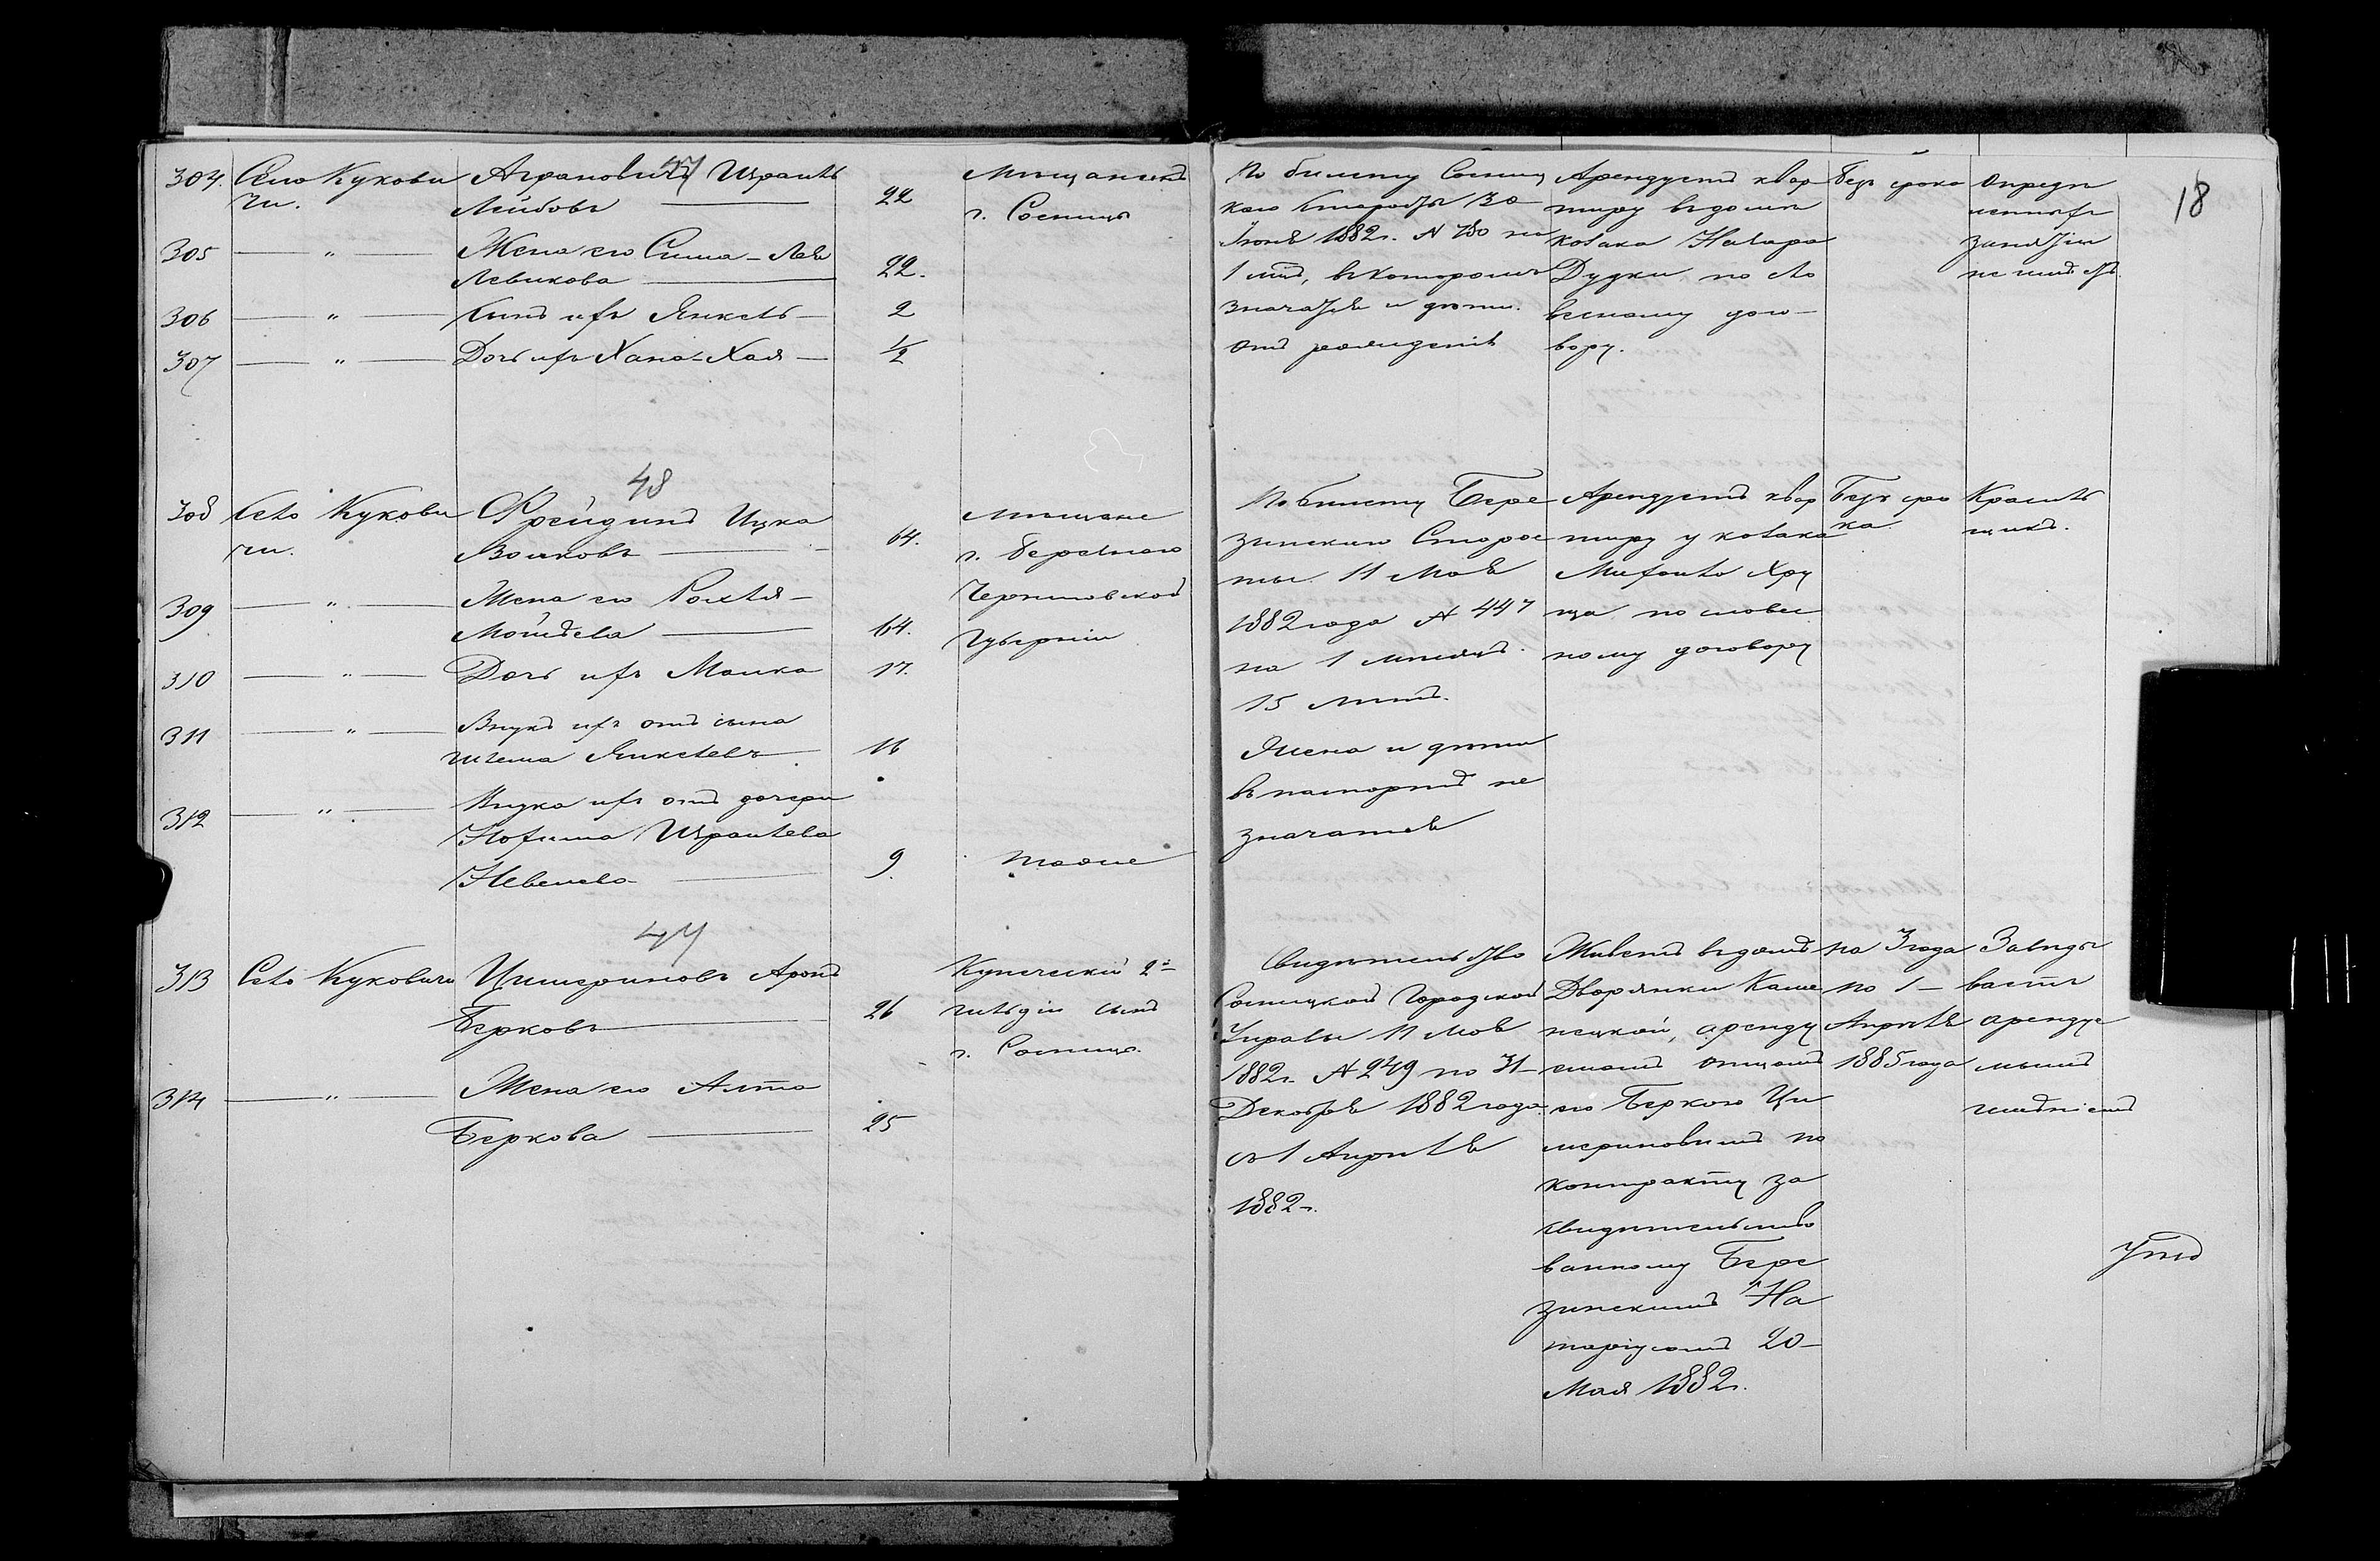 18
47
304. Село Кукови
чи.
Аграновичъ Израиль
Лейбовъ
22
Мѣщанинъ
г. Сосницы
305 " Жена его Сима-Лея
Левикова
22.
306 " Сынъ ихъ Янкель 2
307 " Дочь ихъ Хана-Хая 1/2
По билету Сосниц
кого Старосты 30
Іюня 1882 г. № 780 на
1 мѣс., въ которомъ
значатся и дѣти.
Арендуетъ квар
тиру въ домѣ
козака
Дудки по сло
весному дого-
вору.
Безъ срока
Опредѣ
ленныхъ
занятій
не имѣетъ.
48
308 Село Кукови
чи.
Фрейдинъ Ицка
Вольковъ
64.
мѣщане
г. Березнаго
Черниговской
Губерніи
309 " Жена его
Мойсѣева
64.
310 " Дочь ихъ Малка 17.
311 " Внукъ ихъ отъ сына
Шлема Янкелевъ
16
312 " Внука ихъ отъ дочери
Нохима Израилева
Невелева
9.
По билету Бере
зинскаго Старос
ты 11 Мая
1882 года № 447
на 1 мѣсяцъ.
15 лѣтъ.
Жена и дѣти
въ паспортѣ не
значатся
Арендуетъ квар
тиру у козака
Михаила Хру
ща по словес
ному договору
Безъ сро
ка
Красиль
щикъ.
313 Село Куковичи
Цимериновъ Аронъ
Берковъ
26
Купеческій 2й
гильдіи сынъ
г. Сосницы.
314 " Жена его Алта
Беркова
25
Свидѣтельство
Сосницкой Городской
Управы 11 Мая
1882 г. № 249 по 31
Декабря 1882 года.
съ 1 Апрѣля
1882 г.
Живетъ въ домѣ
Дворянки Каме
нецкой, аренду
емомъ отцомъ
его Беркою Ци
мериновымъ по
контракту за
свидѣтельство
ванному Бере
зинскимъ На
таріусомъ 20
Мая 1882 г.
на 3 года
по 1
Апрѣля
1885 года
Завѣды
ваетъ
арендуе
мымъ
имѣніемъ